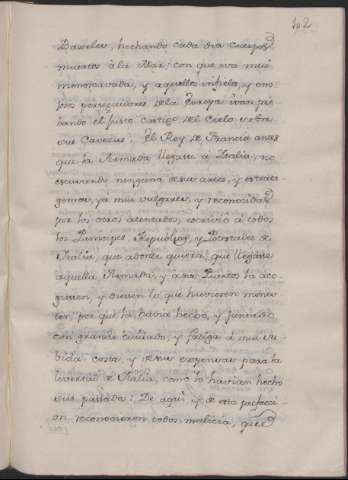 102
Baxeles, hechando cada dia cuerpos
muertos â la Mar: con que iva mui
menoscavada, y aquellos infieles, y en
los perseguidores de la Europa ivan pro
bando el justo castigo del Cielo sobre
sus Cavezas. El Rey de Francia antes
que la Armada llegase â Italia, no
escusando ninguna de sus artes, y estrata
gemas, yâ mui vulgares, y reconocidas
por los otros atentados, escrivió â todos
los Principes, Republicas, y Potentados de
Italia, que adonde quiera, que llegase
aquella Armada, y â sus Puertos la aco
giesen, y diesen lo que huviesen menes
ter, por que la havia hecho, y juntado
con grande cuidado, y fatiga â mui su
bida costa, y de sus expensas para la
livertad de Italia, como lo havian hecho
sus pasados: De aqui, y de esta perfecci
on reconocieron todos malicia, que